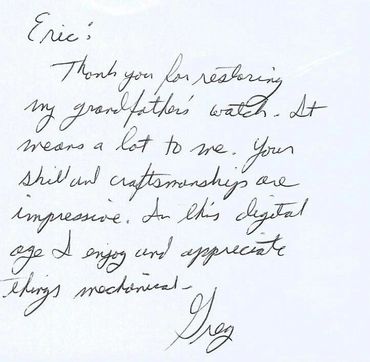 Eric:
Thank you for restoring
my grandfather's watch. It
means a lot to me. Your
skill and craftsmanships are
impressive. In this digital
age I enjoy and appreciate
things mechanical-
Greg